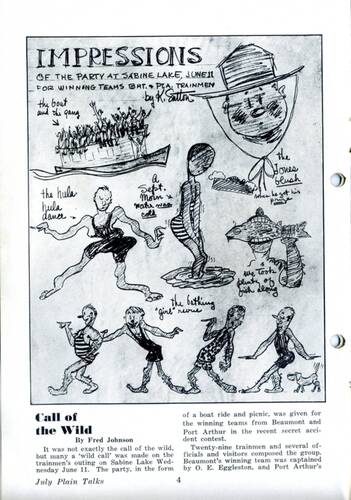 IMPRESSIONS
OF THE PARTY AT SABINE LAKE, JUNE 11
FOR WINNING TEAMS BMT. & P.A. TRAINMEN
the boat
and the gang
the
Jones
blush
when he got his
the hula
hula
dance
A
Sept.
Morn
we took
plenty of
along
the bathing
"girl" revue
Call of
the Wild
By Fred Johnson
It was not exactly the call of the wild,
but many a 'wild call' was made on the
trainmen's outing on Sabine Lake Wed-
nesday June 11. The party, in the form
of a boat ride and picnic, was given for
the winning teams from Beaumont and
Port Arthur in the recent secret acci-
dent contest.
Twenty-nine trainmen and several of-
ficials and visitors composed the group.
Beaumont's winning team was captained
by O. E. Eggleston, and Port Arthur's
July Plain Talks
4